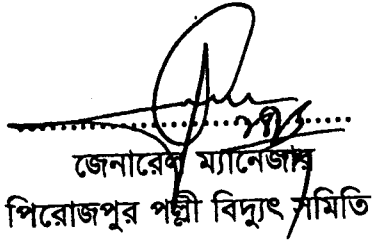 জেনারেল ম্যানেজার
পিরোজপুর পল্লী বিদ্যুৎ সমিতি